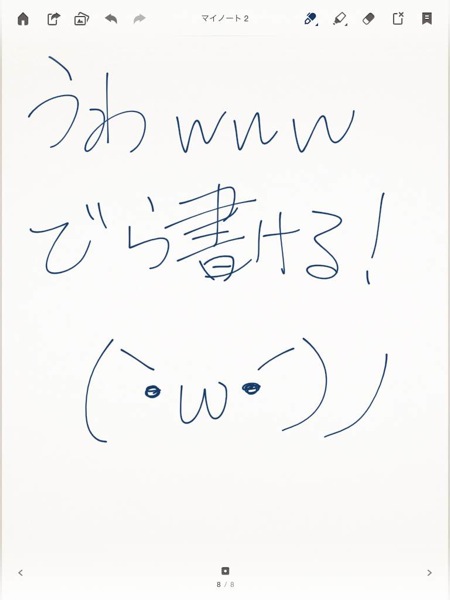 マイノート2
うわwww
でら書ける!
(`•ω•´)ノ
8 / 8